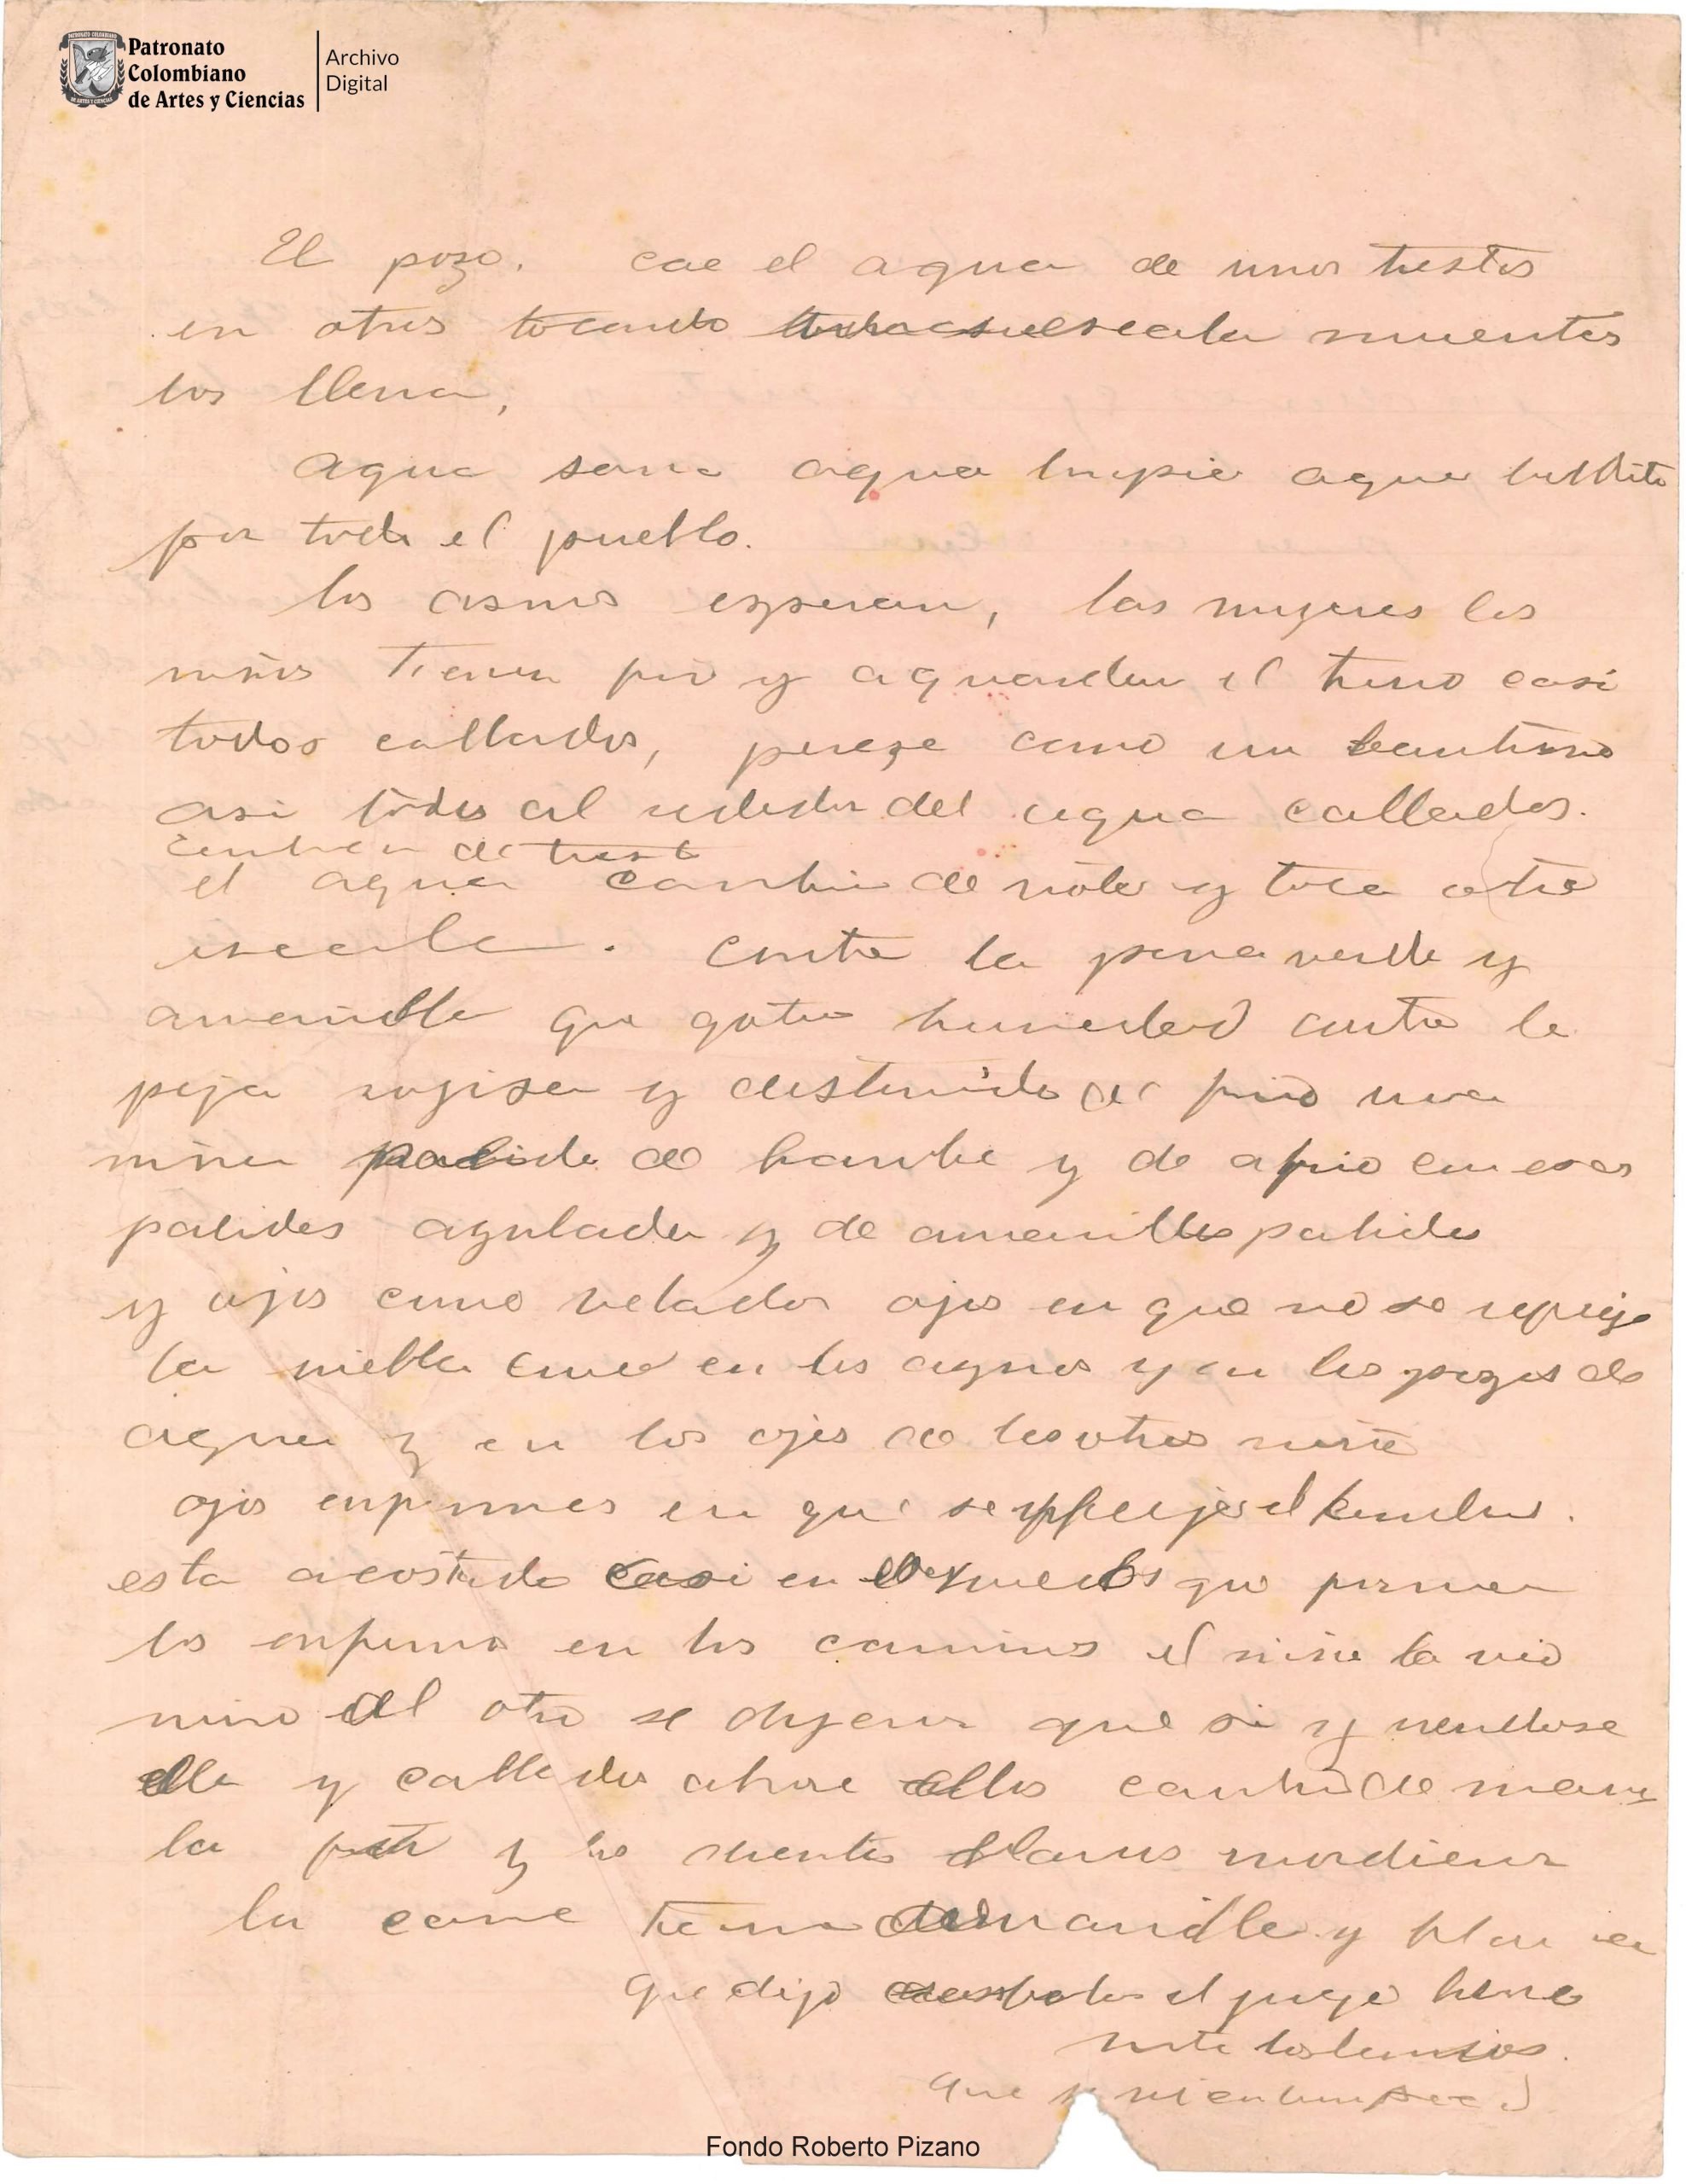 Patronato
Colombiano
de Artes y Ciencias
Archivo
Digital
El pozo. cae el agua de unos tiestos
en otros tocando escala mientras
los llena,
agua sana agua limpia agua
por todo el pueblo.
los asnos esperan, las mujeres los
niños tienen frio y aguardan el turno casi
todos callados, pareze como un bautismo
asi todos al rededor del agua callados.
cambian de
el agua cambia de nota y toca otra
escala. contra la pena verde y
amarilla que gotea humedad contra la
paja rojisa y de frio una
niña palida de hambre y de frio con esas
palides azulada y de amarillos palidos
y ojos como velados ojos en que no se refleja
la niebla como en las aguas y en los pozos de
agua y en los ojos de los otros niño
ojos enfermos en que se refleja el
esta acostada casi en el que forman
los enfermos en los caminos el niño la vio
miro al otro se dijeron que si y
ella y callados ahora ellos cambio de mano
la y los dientes blancos mordieron
la carne tierna amarilla y
que dijo el juego
los labios.
que
Fondo Roberto Pizano